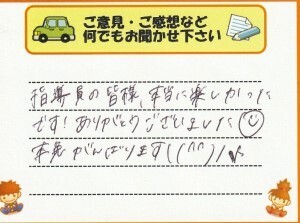 ご意見・ご感想など
何でもお聞かせ下さい
指導員の皆様、本当に楽しかった
です！ありがとうございました
本免がんばります((^^)/